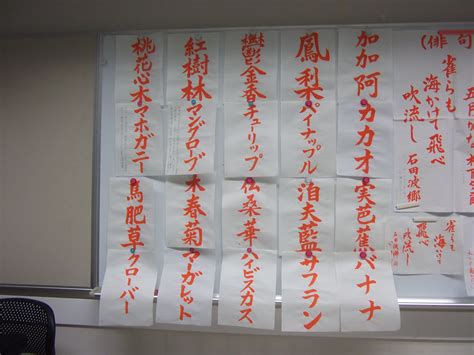 (俳句)
雀らも
海かけて飛べ
吹流し
石田波郷
雀らも
海かけて
飛べ
吹流し
加加阿 カカオ 実芭蕉 バナナ
鳳梨 パイナップル 洎夫藍 サフラン
鬱金香 チューリップ 仏桑華 ハイビスカス
紅樹林 マングローブ 木春菊 マーガレット
桃花心木 マホガニー 馬肥草 クローバー